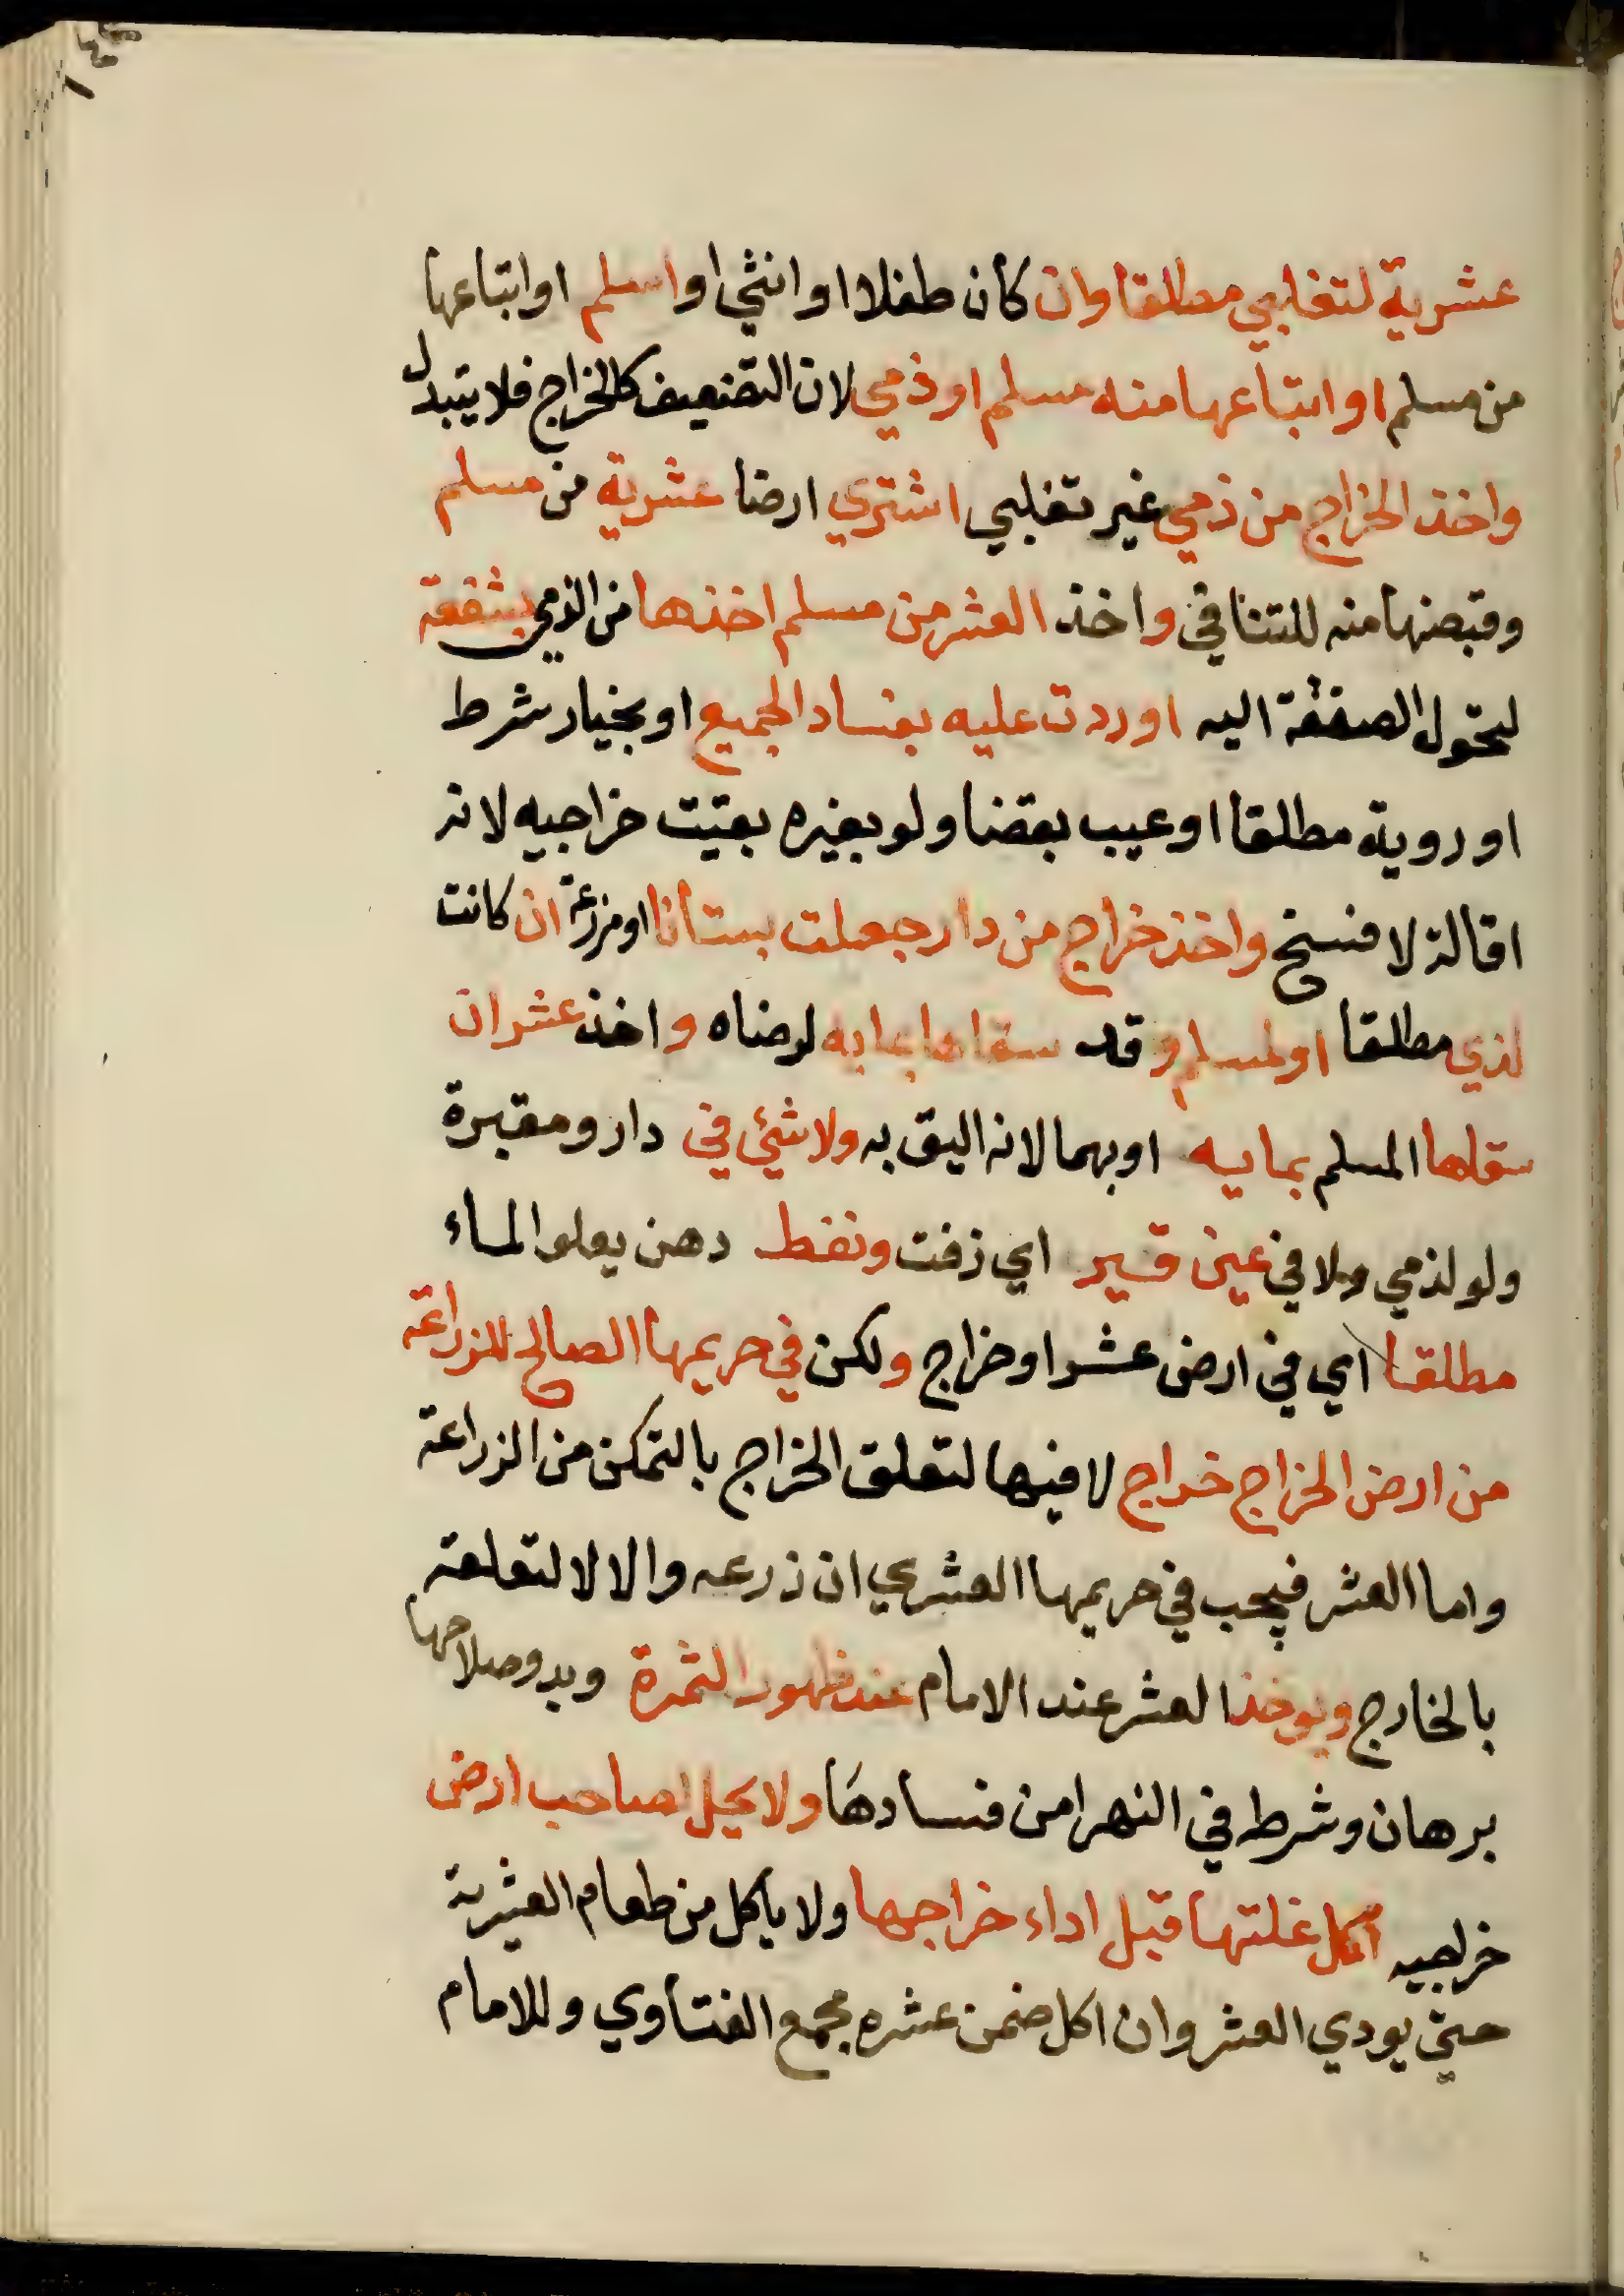 عشرية لتغلبي مطلقا وان كان طفلا او انثي او اسلم او ابتاعها
من مسلم او ابتاعها منه مسلم او ذمي لان التضعيف كالخراج فلا يتبدل
واخذ الخراج من ذمي غير تغلبي اشتري ارضا عشرية من مسلم
وقبضها منه للتنافي واخذ العشر من مسلم اخذها من الذمي بشفعة
لتحول الصفقة اليه او ردت عليه بفساد الجميع او بخيار شرط
او روية مطلقا او عيب بقضا ولو بغيره بقيت خراجيه لانه
اقالة لا فسخ واخذ خراج من دار جعلت بستانا او مزرعة ان كانت
لذي مطلقا او لمسلم وقد سقاها بمايه لرضاه واخذ عشر ان
سقاها المسلم بمايه او بهما لانه اليق به ولا شيئ في دار ومقبرة
ولو لذمي ولا في عين قير اي زفت ونفط دهن يعلوا الماء
مطلقا اي في ارض عشر او خراج ولكن في حريمها الصالح للزراعة
من ارض الخراج خراج لا فيها لتعلق الخراج بالتمكن من الزراعة
واما العشر فيجب في حريمها العشري ان زرعه والا لا لتعلقه
بالخارج ويوخذ العشر عند الامام عند ظهور الثمرة وبدو صلاحها
برهان وشرط في النهر امن فسادها ولا يحل لصاحب ارض
خراجيه اكل غلتها قبل اداء خراجها ولا ياكل من طعام العشرية
حتي يودي العشر وان اكل ضمن عشره مجمع الفتاوي وللامام